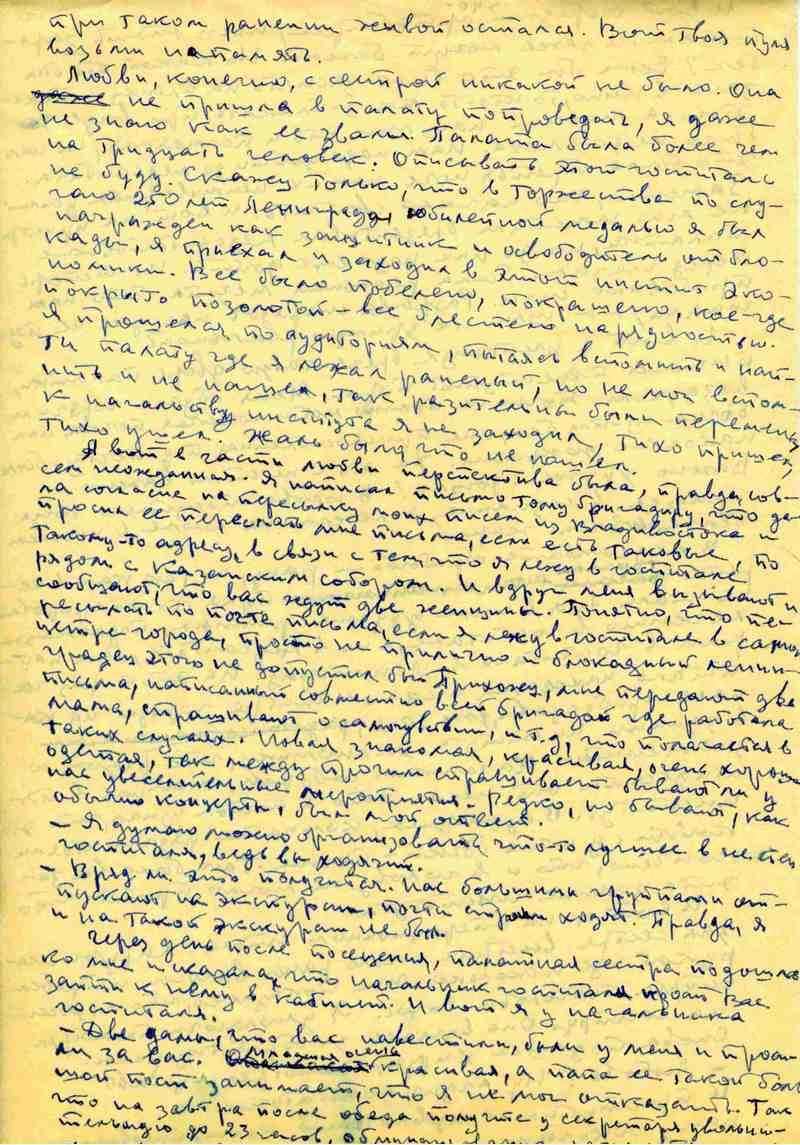 при таком ранении живой остался. Вот твоя пуля
возьми на память.
Любви, конечно, с сестрой никакой не было. Она
даже не пришла в палату попроведать, я даже
не знаю как ее звали. Палата была более чем
на тридцать человек. Описывать этот госпиталь
не буду. Скажу только, что в торжества по слу-
чаю 250 лет Ленинграда юбилейной медалью я был
награжден как защитник и освободитель от бло-
кады, я приехал и заходил в этот инстит эко-
номики. Все было побелено, покрашено, кое-где
покрыто позолотой – все блестело нарядностью.
Я прошелся по аудиториям, пытаясь вспомнить и най-
ти палату где я лежал раненый, но не мог вспом-
нить и не нашел, так разительны были перемены
к начальству института я не заходил, тихо пришел,
тихо ушел. Жаль было что не нашел.
А вот в части любви перспектива была, правда, сов-
сем неожиданная. Я написал письмо тому бригадиру, что да-
ла согласие на пересылку моих писем из Владивостока и
просил ее переслать мне письма, если есть таковые, по
такому-то адресу, в связи с тем, что я лежу в госпитале
рядом с Казанским собором. И вдруг меня вызывают и
сообщают, что вас ждут две женщины. Понятно, что пе-
ресылать по почте письма, если я лежу в госпитале в самом
центре города, просто не прилично и блокадный ленин-
градец этого не допустил бы. Прихожу, мне передают два
письма, написанный совместно всей бригадой где работала
мама, спрашивают о самочувствии, и т.д., что полагается в
таких случаях. Новая знакомая, красивая, очень хорошо
одетая, так между прочим спрашивает бывают ли у
нас увеселительные мероприятия. – Редко, но бывают, как
обычно концерты, был мой ответ.
– Я думаю можно организовать что-то лучшее в не стен
госпиталя, ведь вы ходячий.
– Вряд ли это получится. Нас большими группами от-
пускают на экскурсии, почти строем ходят. Правда, я
и на такой экскурсии не был.
Через день после посещения, палатная сестра подошла
ко мне и сказала, что начальник госпиталя просит Вас
зайти к нему в кабинет. И вот я у начальника
госпиталя.
– Две дамы, что вас навестили, были у меня и проси-
ли за вас. Младшая очень красивая, а папа ее такой боль-
шой пост занимает, что я не мог отказать. Так
что на завтра после обеда получите у секретаря увольни-
тельную до 23 часов,